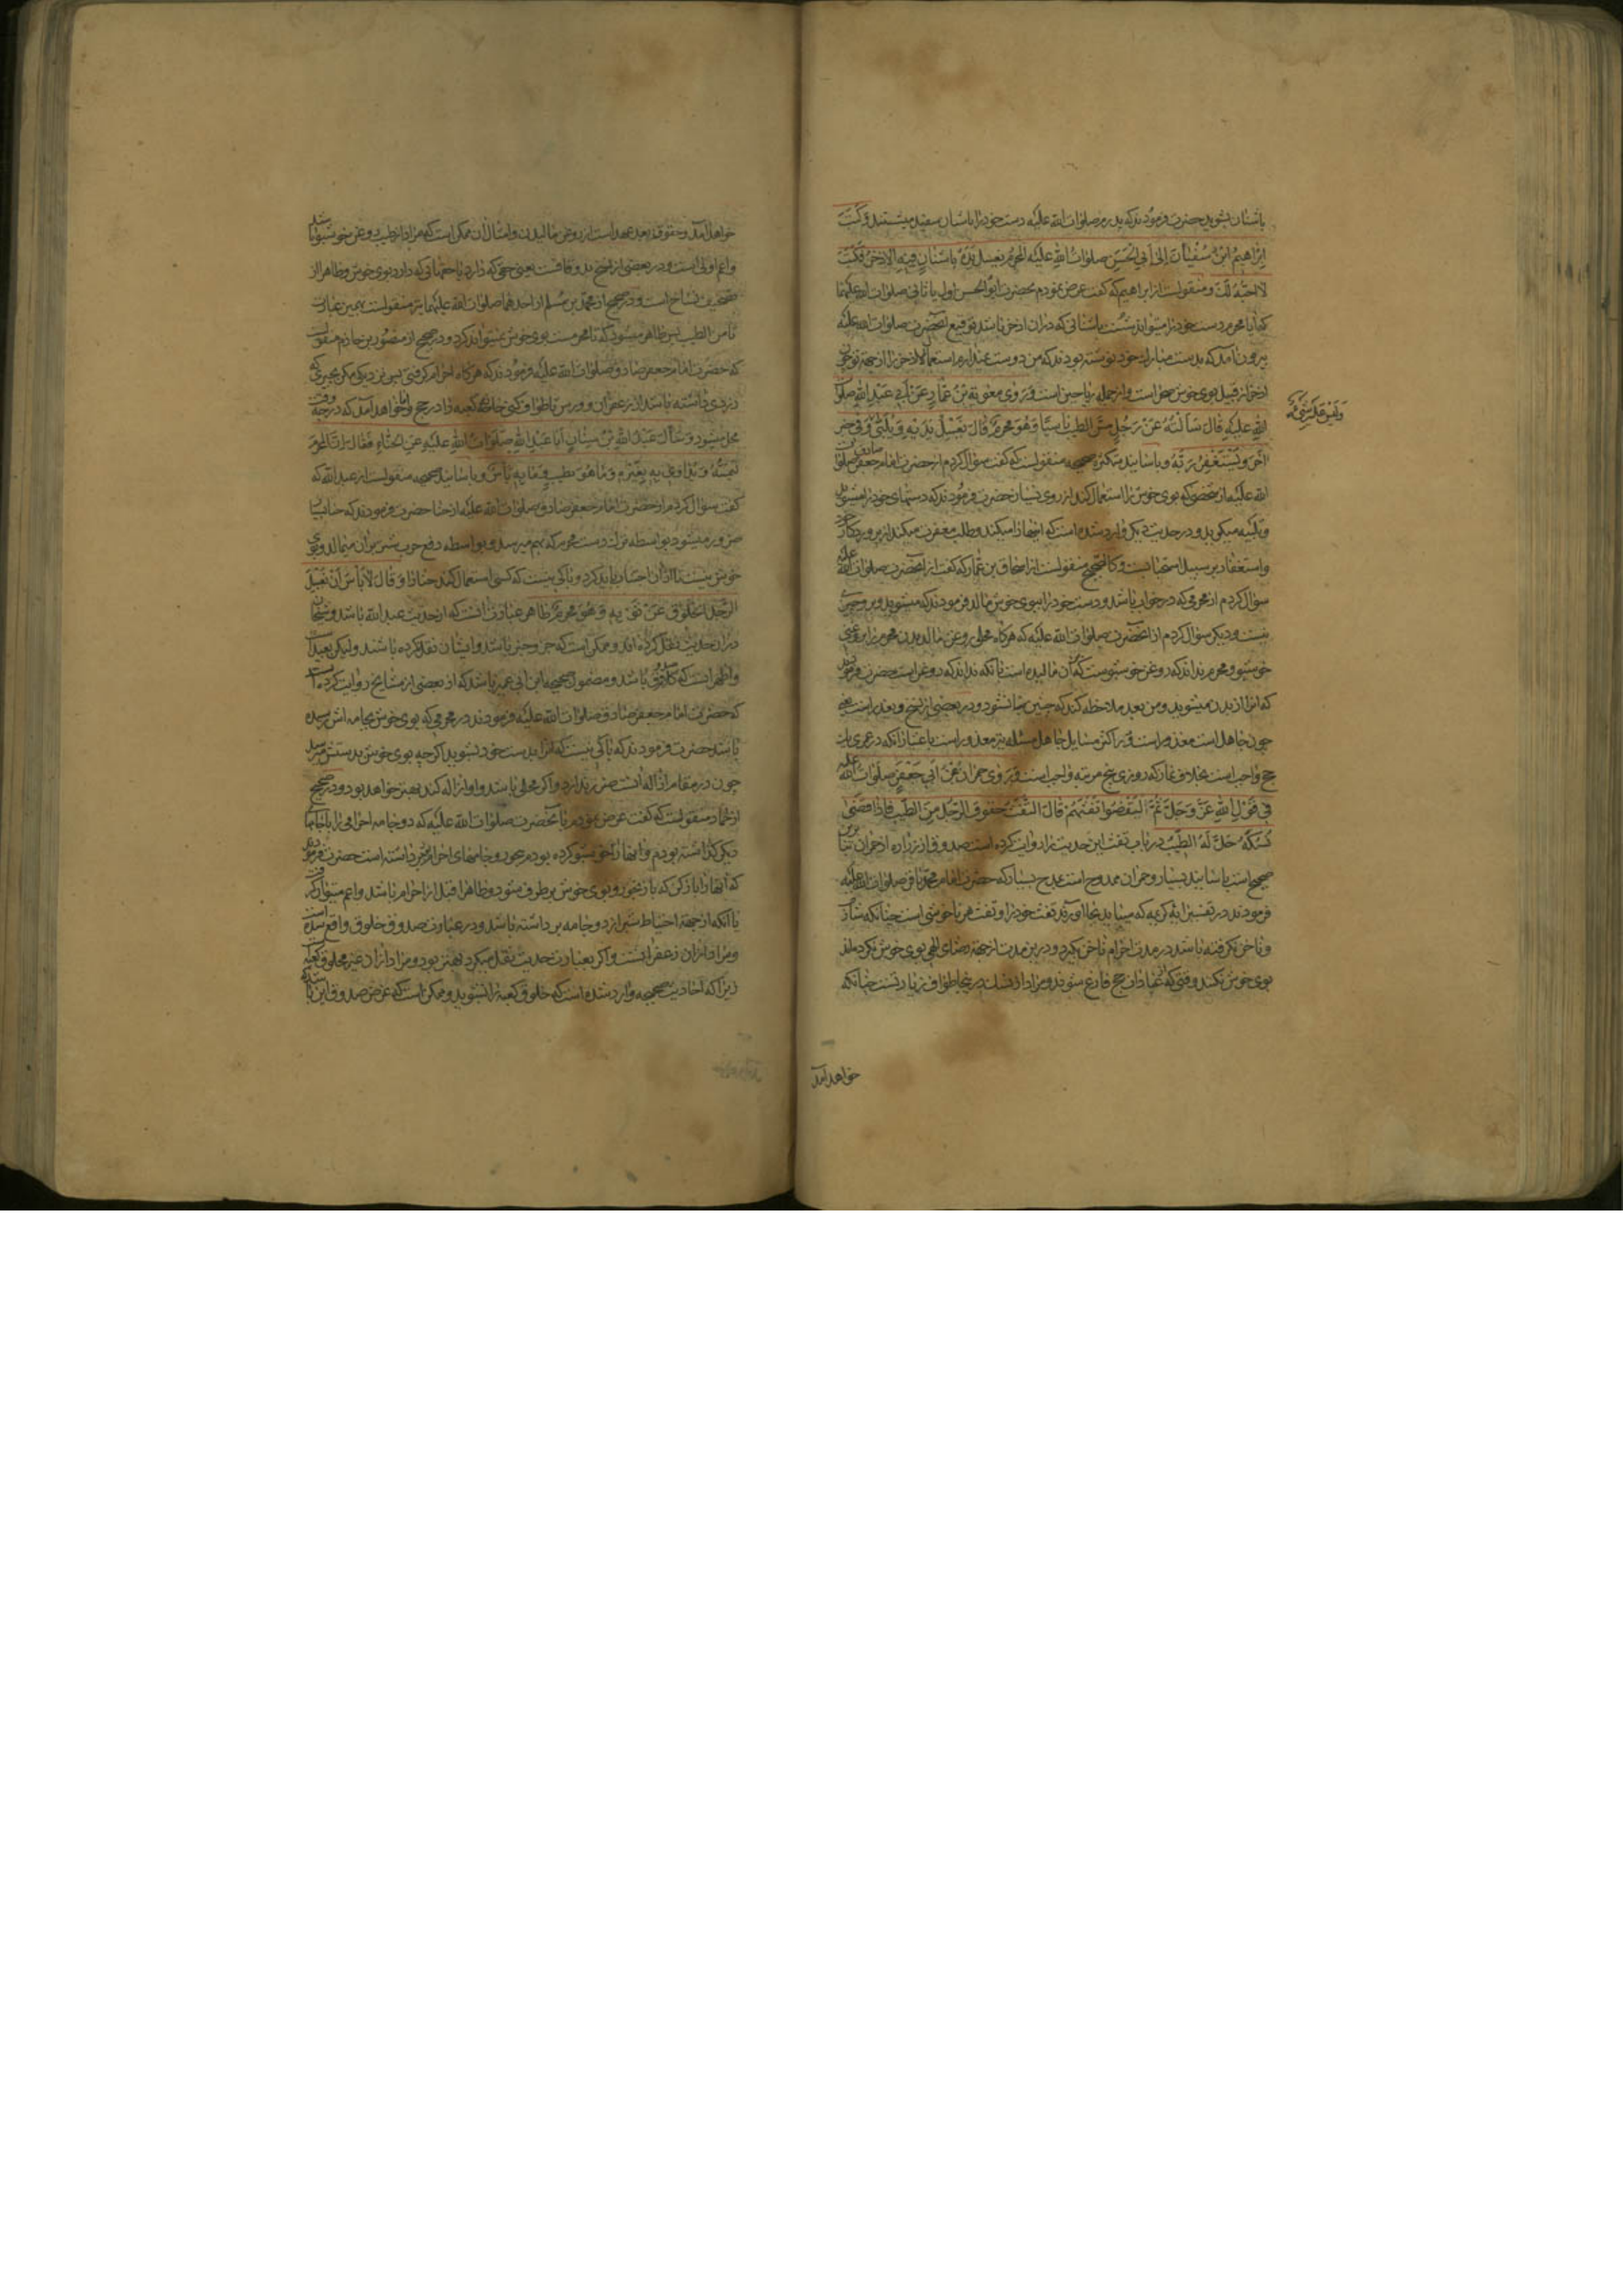 باشنان بشويد حضرت فرمودند كه پدرم صلوات الله عليه دست خود را باشنان سفيد ميشستند وَكَتَبَ
اِبْرٰاهِيمُ ابْنُ سُفْيٰانَ اِلىٰ اَبِي الْحَسَنِ صلوات الله عليه المُحرِمُ يَغسِلُ يَدَهُ بِاُشنانٍ فيهِ الاِذخِرُ فَكَتَبَ
لا اُحِبُّهُ لَكَ ومنقولست از ابراهيم كه گفت عرض نمودم بحضرت ابو الحسن اول يا ثاني صلوات الله عليهما
كه ايا محرم دست خود را ميتواند شست باشناني كه دران اذخر باشد توقيع انحضرت صلوات الله عليه
بيرون امد كه بدست مبارك خود نوشته بودند كه من دوست نميدارم استعمال اذخر را از جهة تو چون
اذخر از قبيل بوي خوش صحرا است واز جمله رياحين است وَرَوىٰ مُعٰوِيَةُ بْنُ عَمّٰارٍ عَنْ اَبي عَبْدِ اللهِ صلوات
اللهِ عليه قٰالَ سَاَلتُهُ عَنْ رَجُلٍ مَسَّ الطيبَ ناسيًا وَهُوَ مُحْرِمٌ قٰالَ يَغْسِلُ يَدَيْهِ وَيُلَبّي وَفي خبر
اخَرَ وَيَسْتَغْفِرُ رَبَّهُ وباسانيد متكثره صحيحه منقولست كه گفت سؤال كردم از حضرت امام جعفر صادق صلوات
الله عليه از شخصي كه بوي خوش را استعمال كند از روي نسيان حضرت فرمودند كه دستهاي خود را ميشويد
وتلبيه ميگويد ودر حديث ديگر وارد شده است كه اينها را ميكند وطلب مغفرت ميكند از پروردگار خود
واستغفار بر سبيل استحبابست وكالصحيح منقولست از اسحاق بن عمار كه گفت از انحضرت صلوات الله عليه
سؤال كردم از محرمي كه در خواب باشد ودست خود را ببوي خوش مالد فرمودند كه ميشويد وبر او چيزي
نيست وديگر سؤال كردم از انحضرت صلوات الله عليه كه هرگاه محلي روغن مالد بدن محرم را بروغني
خوشبو ومحرم نداند كه روغن خوشبوست كه بران ماليده است يا نكه نداند كه روغن است حضرت فرمودند
كه انرا از بدن ميشويد ومن بعد ملاحظه كند كه چنين نشود ودر بعضي از نسخ وبعذر است يعني
چون جاهل است معذور است ودر اكثر مسايل جاهل مسئله نيز معذور است باعتبار انكه در عمري يك
حج واجب است بخلاف نماز كه روزي پنج مرتبه واجب است وَرَوىٰ حُمرانُ عَنْ اَبي جَعْفَرٍ صلوات الله عليه
في قَوْلِ اللهِ عَزَّ وَجَلَّ ثُمَّ لْيَقْضُوا تَفَثَهُمْ قٰالَ التَّفَثُ حُفوفُ الرَّجُلِ مِنَ الطّيبِ فَاِذا قَضىٰ
نُسُكَهُ حَلَّ لَهُ الطّيبُ در باب تفث اين حديث را روايت كرده است صدوق از زراره از حمران بنا برين
صحيح است باسانيد بسيار وحمران ممدوح است بمدح بسيار كه حضرت امام محمد باقر صلوات الله عليه
فرمودند در تفسير ايه كريمه كه ميبايد بجا اورند تفث خود را وتفث هر ناخوشي است چنانكه شارب
وناخن نگرفته باشد در مدت احرام ناخن بگيرد ودرين مدت از جهة رضاي الهي بوي خوش نكرده اند
بوي خوش بكنند وقتي كه از عبادات حج فارغ شوند ومراد از نسك در ينجا طواف زيارتست چنانكه
خواهد امد
وليس عليه شيء
خواهد آمد وحفوف بعد عهد است از روغن ماليدن وامثال ان ممكن است كه مراد از طيب روغن خوشبو باشد
واعم اولي است ودر بعضي از نسخ بدو قافست يعني حقي كه دارد يا حقهائي كه دارد بوي خوش وظاهرا از
تصحيف نساخ است ودر صحيح از محمد بن مسلم از احدهما صلوات الله عليهما نيز منقولست بهمين عبارت
تا من الطيب پس ظاهر ميشود كه تا محرمست بوي خوش نميتواند كرد ودر صحيح از منصور بن حازم منقولست
كه حضرت امام جعفر صادق صلوات الله عليه فرمودند كه هرگاه احرام گرفتي پس نزديكي مكن بچيزي كه
زردي داشته باشد از زعفران وورس تا طواف كني خانه كعبه را در حج واما خواهد آمد كه در چه وقت
محل ميشود وَسَاَلَ عَبْدُ اللهِ بْنُ سِنٰانٍ اَبٰا عَبْدِ اللهِ صَلَوٰاتُ اللهِ عَلَيْهِ عَنِ الْحِنّٰاءِ فَقٰالَ اِنَّ المُحْرِمَ
لَيَمَسُّهُ وَيُدٰاوي بِهِ بَعيرَهُ وَمٰا هُوَ بِطيبٍ وَمٰا بِهِ بَأسٌ وباسانيد صحيحه منقولست از عبد الله كه
گفت سؤال كردم از حضرت امام جعفر صادق صلوات الله عليه از حنا حضرت فرمودند كه حنا بسيار
ضرور ميشود بواسطه ترك دست محرم كه بهم ميرسد وبواسطه دفع جرب شتر بران ميمالد وبوي
خوش نيست تا از ان احتراز بايد كرد وباكي نيست كه كسي استعمال كند حنا را وَقٰالَ لٰا بَأْسَ اَنْ يَغْسِلَ
الرَّجُلُ الخَلُوقَ عَنْ ثَوْبِهِ وَهُوَ مُحْرِمٌ ظاهر عبارت انست كه از حديث عبد الله باشد وشيخان
دران حديث نقل نكرده اند وممكن است كه جزو خبر باشد وايشان نقل نكرده باشند وليكن بعيد است
واظهر انست كه كلام صدوق باشد ومضمون صحيحه ابن ابي عمير باشد كه از بعضي از مشايخ روايت كرده است
كه حضرت امام جعفر صادق صلوات الله عليه فرمودند در محرمي كه بوي خوش بجامه اش رسيده
باشد حضرت فرمودند كه باكي نيست كه انرا بدست خود بشويد اگرچه بوي خوش بدستش ميرسد
چون در مقام ازاله انست ضرر ندارد واگر محلي باشد واو ازاله كند بهتر خواهد بود ودر صحيح
از حماد منقولست كه گفت عرض نمودم بانحضرت صلوات الله عليه كه دو جامه احرامي را با جامهاي
ديگر گذاشته بودم وانها را خوشبو كرده بودم ببخور وجامهاي احرام نيز برداشته است حضرت فرمودند
كه انها را باز كن كه باد بخورد وبوي خوش برطرف شود وظاهرا قبل از احرام باشد واعم ميتوان گرفت
يا انكه از جهة احتياط بيش از دو جامه برداشته باشد ودر عبارت صدوق خلوق واقع شده است
ومراد از ان زعفرانست واگر بعبارت حديث نقل ميكرد بهتر بود ومراد از ان غير خلوق كعبه است
زيرا كه احاديث صحيحه وارد شده است كه خلوق كعبه را نشويد وممكن است كه غرض صدوق اين باشد كه